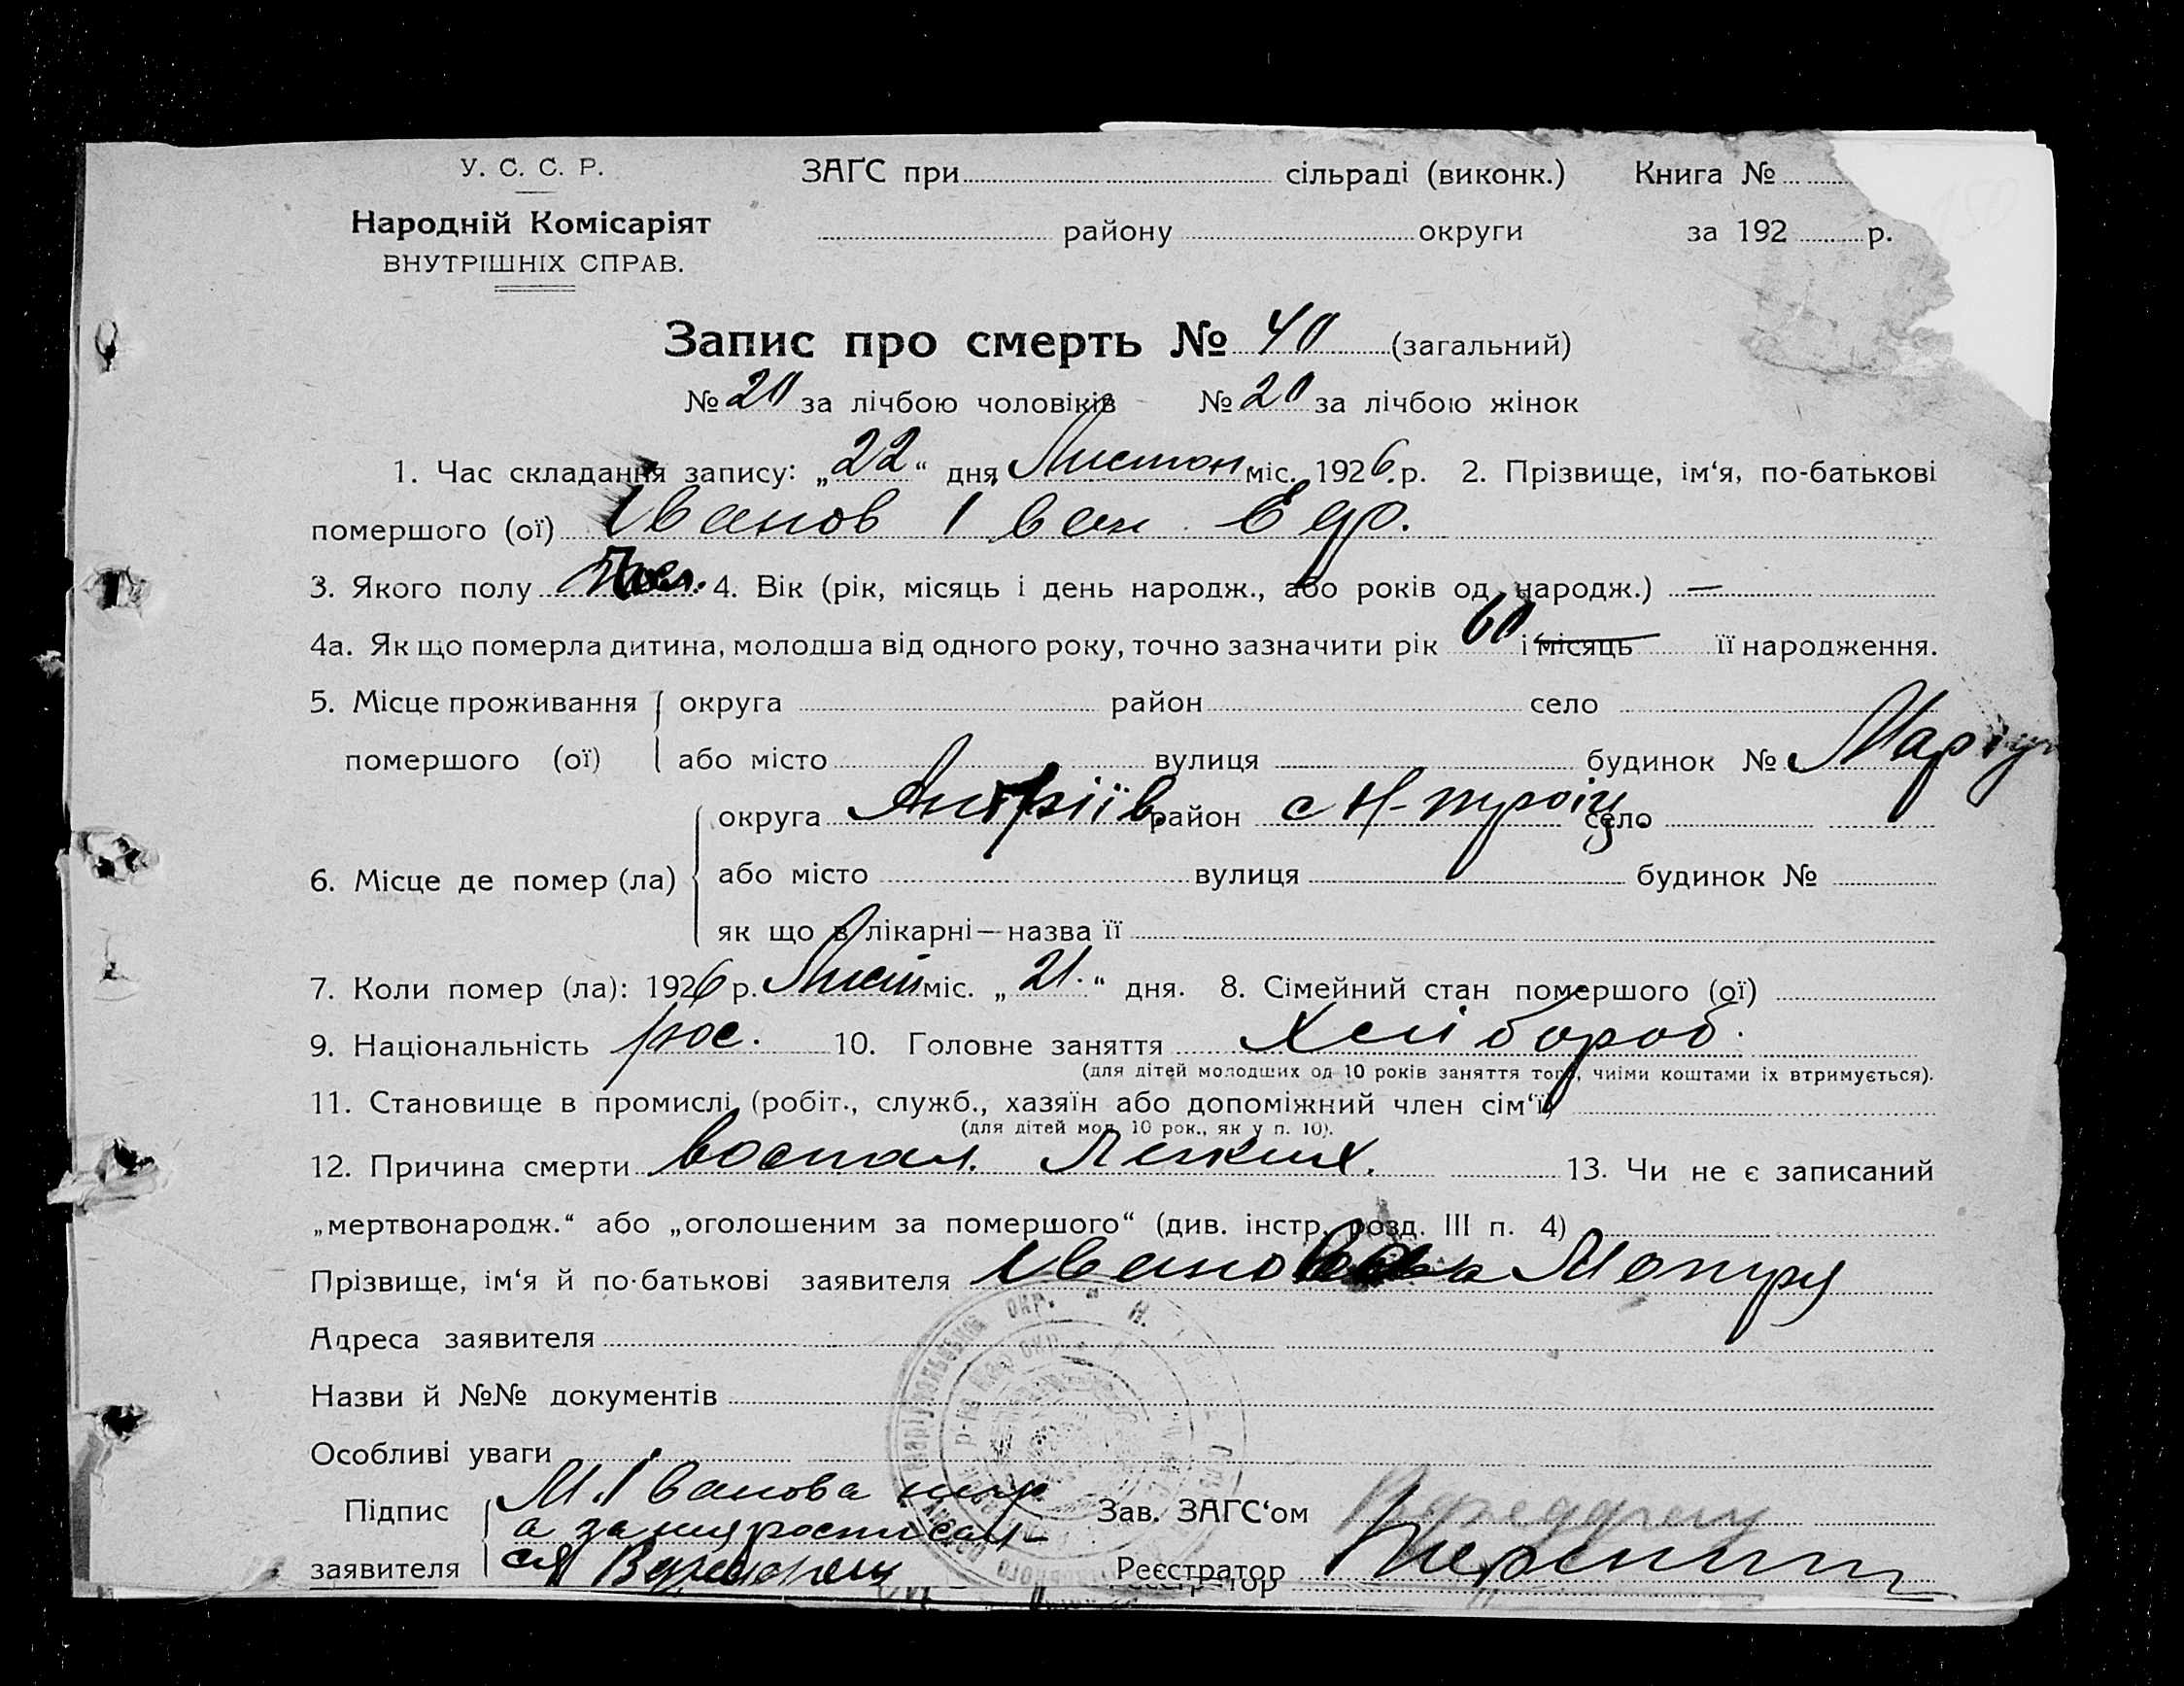 У. С. С. Р.
Народній Комісаріят
ВНУТРІШНІХ СПРАВ.
ЗАГС при сільраді (виконк.) Книга №
району округи за 192 р.
Запис про смерть № 40 (загальний)
№ 20 за лічбою чоловіків № 20 за лічбою жінок
1. Час складання запису: „22“ дня Листоп міс. 1926 р. 2. Прізвище, ім‘я, по-батькові
помершого (ої) Іванов Іван
3. Якого полу 4. Вік (рік, місяць і день народж., або років од народж.) —
4а. Як що померла дитина, молодша від одного року, точно зазначити рік 60 і місяць її народження.
5. Місце проживання округа район село
помершого (ої) або місто вулиця будинок № Маріуп
6. Місце де помер (ла) округа район с Н-троіц село
або місто вулиця будинок №
як що в лікарні—назва її
7. Коли помер (ла): 1926 р. Лист міс. „21“ дня. 8. Сімейний стан помершого (ої)
9. Національність рос. 10. Головне заняття Хлібороб.
(для дітей молодших од 10 років заняття того, чиїми коштами їх втримується).
11. Становище в промислі (робіт., служб., хазяїн або допоміжний член сім‘ї)
(для дітей мол. 10 рок., як у п. 10).
12. Причина смерти воспал. Легких. 13. Чи не є записаний
„мертвонародж.“ або „оголошеним за помершого“ (див. інстр. розд. III п. 4)
Прізвище, ім‘я й по-батькові заявителя
Адреса заявителя
Назви й №№ документів
Особливі уваги
Підпис М. Іванова Зав. ЗАГС‘ом
заявителя Реєстратор